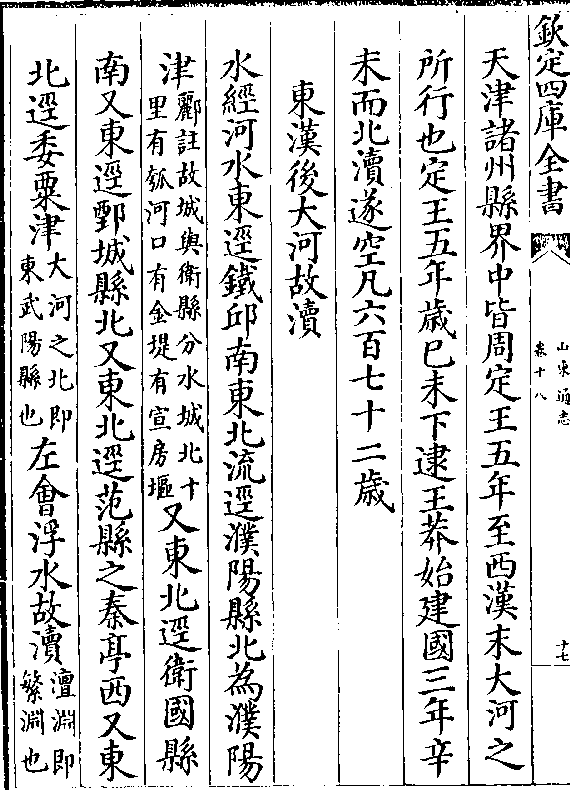 欽定四庫全書
山東通志
卷十八
十七
天津諸州縣界中皆周定王五年至西漢末大河之
所行也定王五年歲巳未下逮王莽始建國三年辛
未而北瀆遂空凡六百七十二歲
東漢後大河故瀆
水經河水東逕鐵邱南東北流逕濮陽縣北為濮陽
津酈註故城與衛縣分水城北十里有瓠河口有金堤有宣房堰又東北逕衛國縣
南又東逕鄄城縣北又東北逕范縣之秦亭西又東
北逕委粟津大河之北即東武陽縣也左會浮水故瀆澶淵即繁淵也